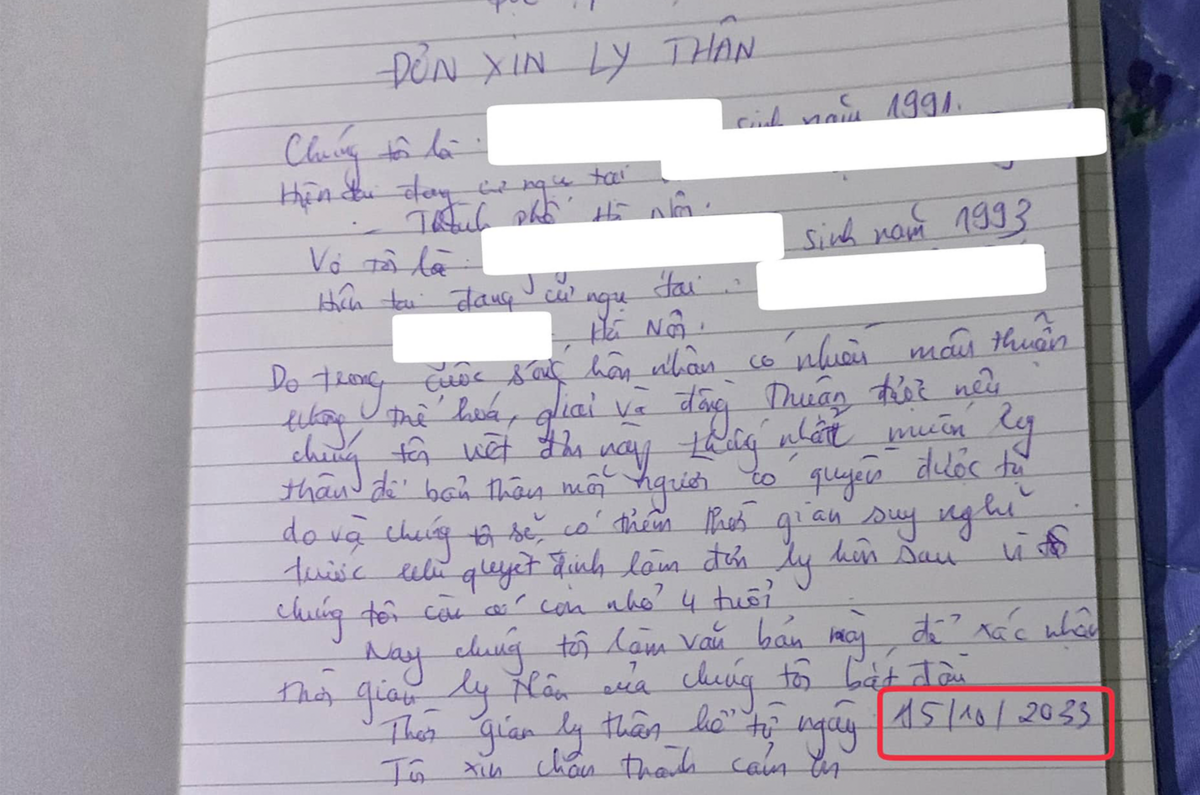 ĐƠN XIN LY THÂN
Chúng tôi là : sinh năm 1991.
Hiện tại đang cư ngụ tại
- Thành phố Hà Nội.
Vợ tôi là : sinh năm 1993
Hiện tại đang cư ngụ tại :
, Hà Nội.
Do trong cuộc sống hôn nhân có nhiều mâu thuẫn
không thể hoá giải và đồng thuận được nên
chúng tôi viết đơn này thống nhất muốn ly
thân để bản thân mỗi người có quyền được tự
do và chúng tôi sẽ có thêm thời gian suy nghĩ
trước khi quyết định làm đơn ly hôn sau vì
chúng tôi còn có con nhỏ 4 tuổi
Nay chúng tôi làm văn bản này để xác nhận
thời gian ly thân của chúng tôi bắt đầu
Thời gian ly thân kể từ ngày 15/10/2033
Tôi xin chân thành cảm ơn